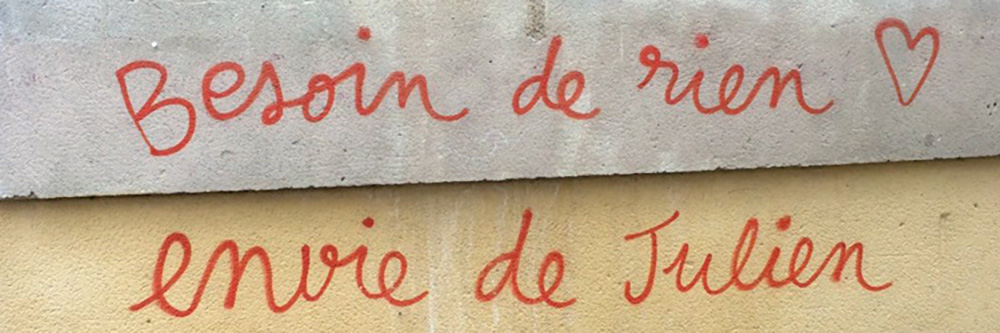 Besoin de rien ♡
envie de Julien